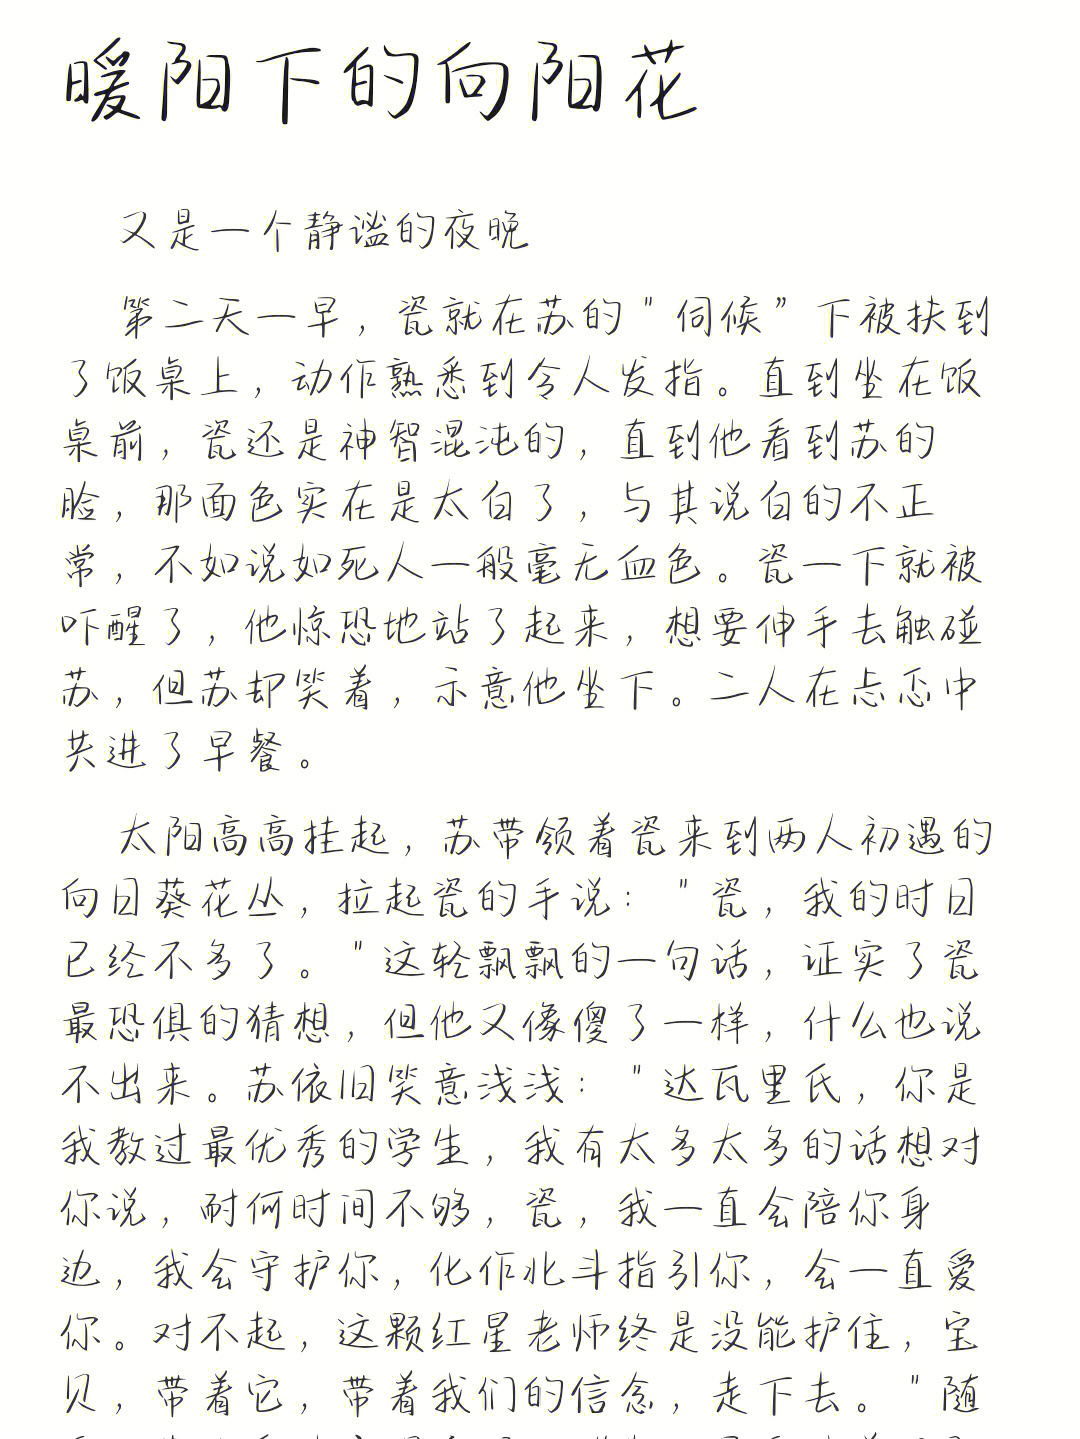 暖阳下的向阳花
又是一个静谧的夜晚
第二天一早，瓷就在苏的"伺候"下被扶到
了饭桌上，动作熟悉到令人发指。直到坐在饭
桌前，瓷还是神智混沌的，直到他看到苏的
脸，那面色实在是太白了，与其说白的不正
常，不如说如死人一般毫无血色。瓷一下就被
吓醒了，他惊恐地站了起来，想要伸手去触碰
苏，但苏却笑着，示意他坐下。二人在忐忑中
共进了早餐。
太阳高高挂起，苏带领着瓷来到两人初遇的
向日葵花丛，拉起瓷的手说："瓷，我的时日
已经不多了。"这轻飘飘的一句话，证实了瓷
最恐惧的猜想，但他又像傻了一样，什么也说
不出来。苏依旧笑意浅浅："达瓦里氏，你是
我教过最优秀的学生，我有太多太多的话想对
你说，耐何时间不够，瓷，我一直会陪你身
边，我会守护你，化作北斗指引你，会一直爱
你。对不起，这颗红星老师终是没能护住，宝
贝，带着它，带着我们的信念，走下去。"随